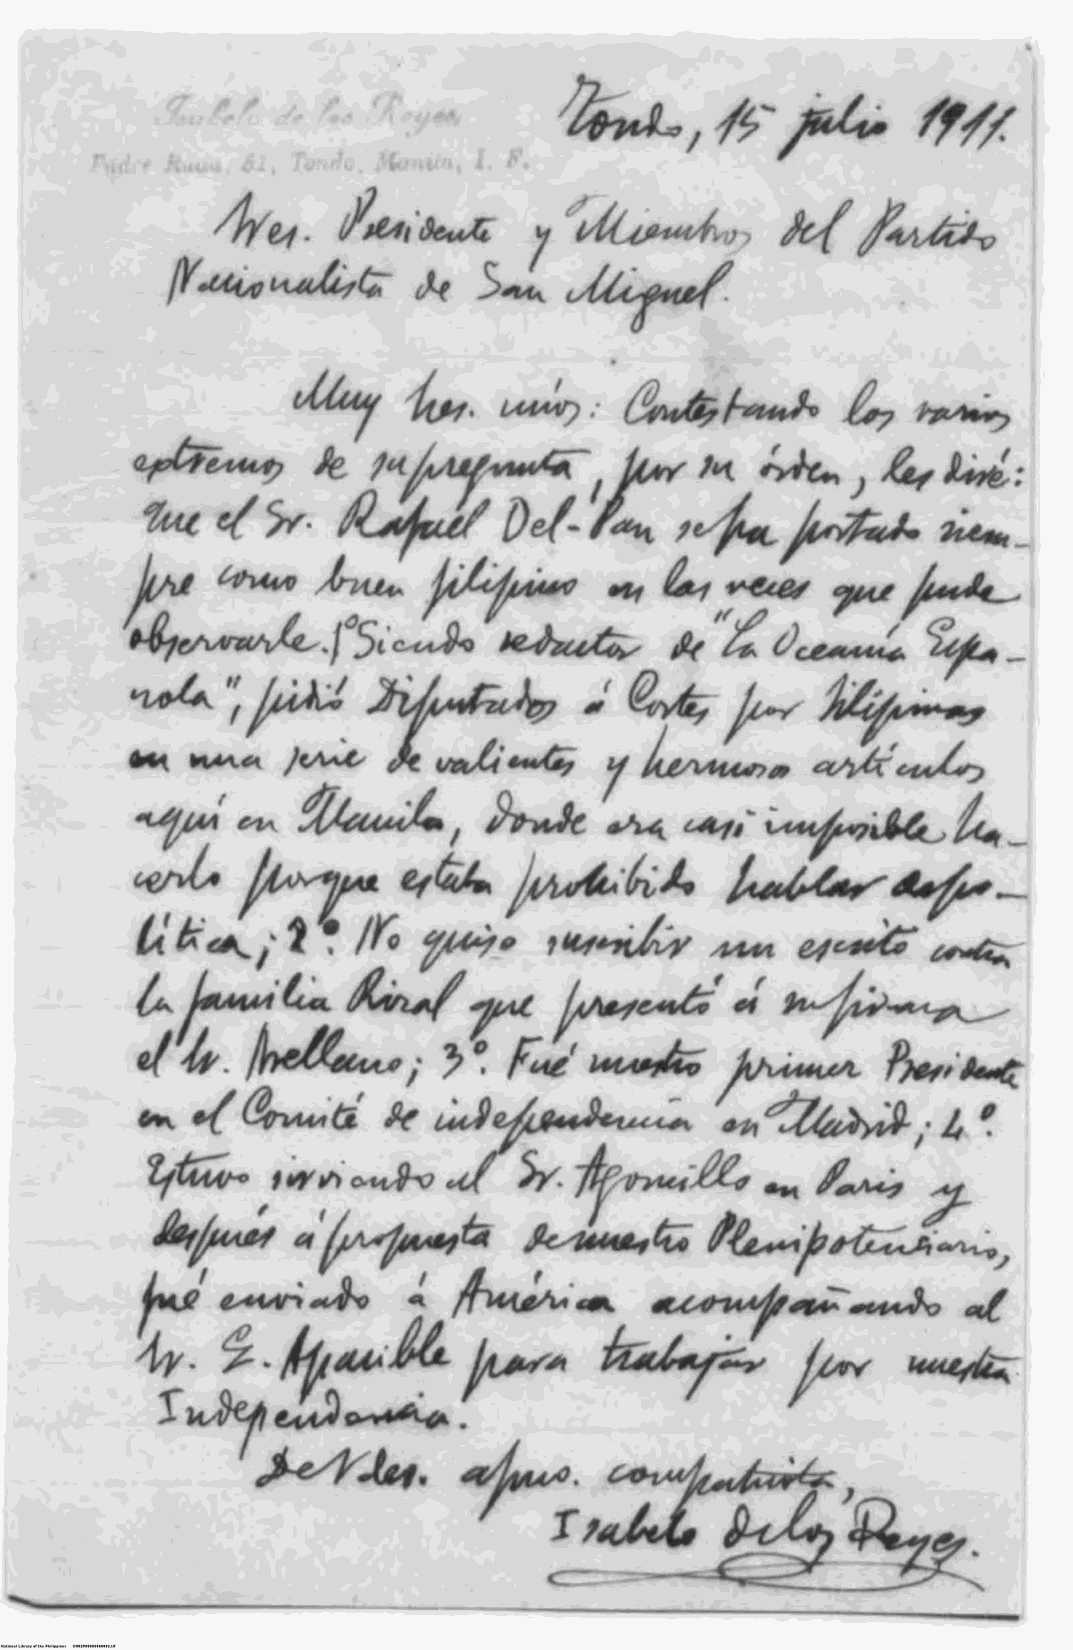 Isabelo de los Reyes
Padre Rada, 61, Tondo, Manila, I. F.
Tondo, 15 julio 1911.
Sres. Presidente y Miembros del Partido
Nacionalista de San Miguel.
Muy Sres. mios: Contestando los varios
extremos de su pregunta, por su órden, les diré:
que el Sr. Rafael Del-Pan se ha portado siem-
pre como buen filipino en las veces que pude
observarle. 1º Siendo redactor de "La Oceanía Espa-
ñola", pidió Diputados á Cortes por Filipinas
en una serie de valientes y hermosos artículos
aquí en Manila, donde era casi imposible ha-
cerlo porque estaba prohibido hablar de po-
lítica; 2º. No quiso suscribir un escrito contra
la familia Rizal que presentó á su firma
el Sr. Arellano; 3º. Fué nuestro primer Presidente
en el Comité de independencia en Madrid; 4º.
Estuvo sirviendo al Sr. Agoncillo en Paris y
después á propuesta de nuestro Plenipotenciario,
fué enviado á América acompañando al
Sr. G. Apacible para trabajar por nuestra
Independencia.
De Vdes. afmo. compatriota,
Isabelo de los Reyes.
National Library of the Philippines